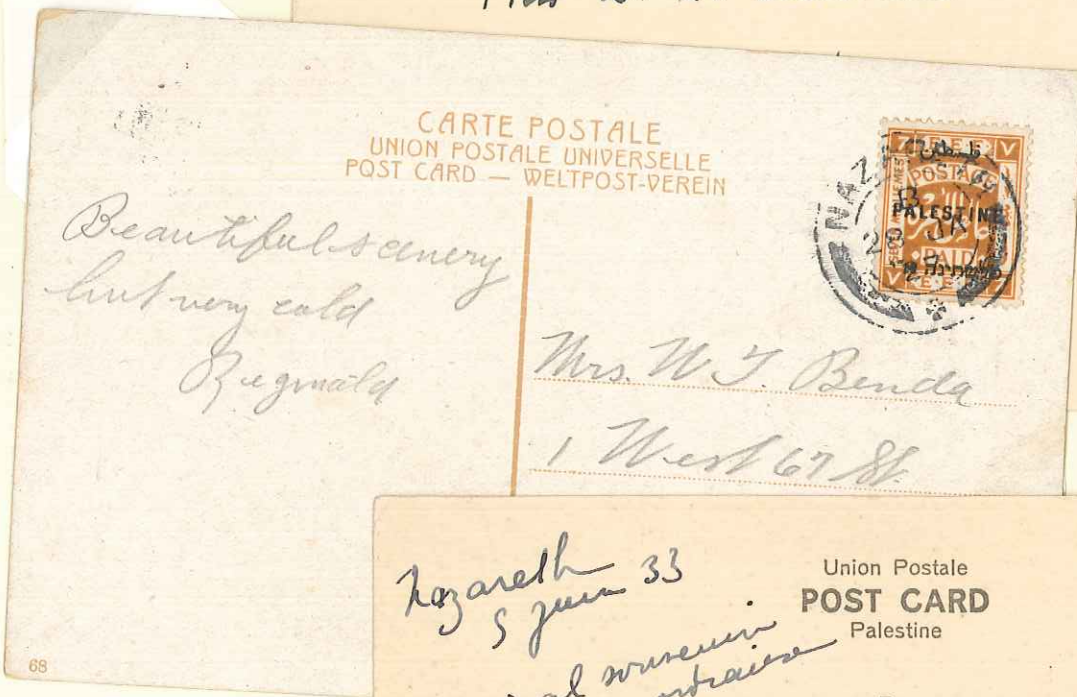 CARTE POSTALE
UNION POSTALE UNIVERSELLE
POST CARD — WELTPOST-VEREIN
Beautiful scenery
but very cold
Reginald
NAZARETH
POSTAGE
PALESTINE
PAID
Mrs. W T. Benda
1 West 67 St.
68
Nazareth
5 juin 33
souvenir
Union Postale
POST CARD
Palestine